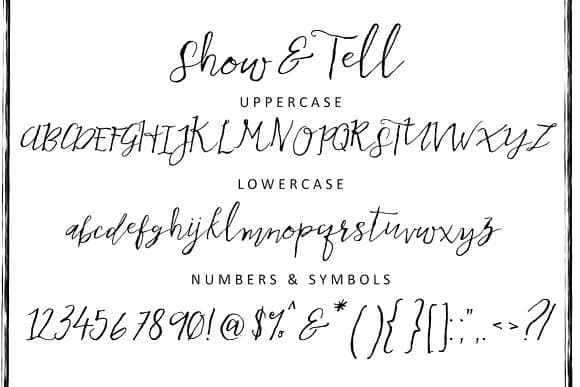 Show & Tell
UPPERCASE
ABCDEFGHIJKLMNOPQRSTUVWXYZ
LOWERCASE
abcdefghijklmnopqrstuvwxyz
NUMBERS & SYMBOLS
1234567890!@$%^&*(){}[]:;",.<>?/